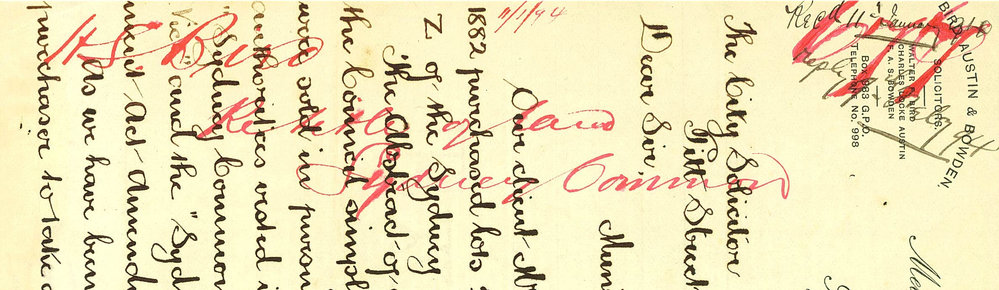 BIRD, AUSTIN & BOWDEN,
SOLICITORS.
WALTER F. BIRD
CHARLES LOCKE AUSTIN
F. A. S. BOWDEN
BOX 983 G.P.O.
TELEPHONE No. 998
Recd 11
The City Solicitor
Pitt Street
Dear Sir,
Our client M
1882 purchased lots
Z of the Sydney
The Abstract of
the Council simpl
were sold in pursu
authorities vested i
"Sydney Common
Vic" and the "Syd
ment Act Amend
As we have been
purchaser to take
11/1/94
Re title of land
Sydney Common